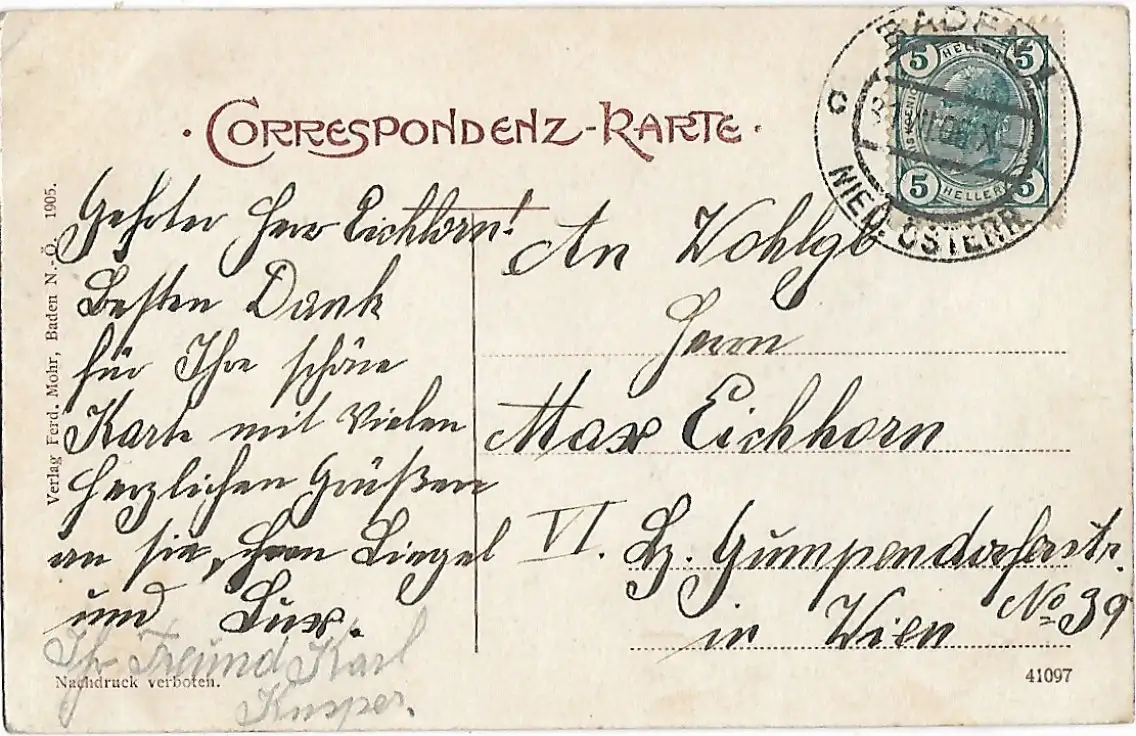 CORRESPONDENZ-KARTE
BADEN 1
NIED. ÖSTERR.
5 HELLER 5
5 HELLER 5
Verlag Ferd. Mohr, Baden N.-Ö. 1905.
Gehrter Herr Eichhorn!
Besten Dank
für Ihre schöne
Karte mit Vielen
herzlichen Grüßen
an sie, Herrn
und Lux.
Ihr Freund Karl
An Wohlgb
Herrn
Max Eichhorn
VI. Bz. Gumpendorferstr.
No 39
in Wien
Nachdruck verboten.
41097